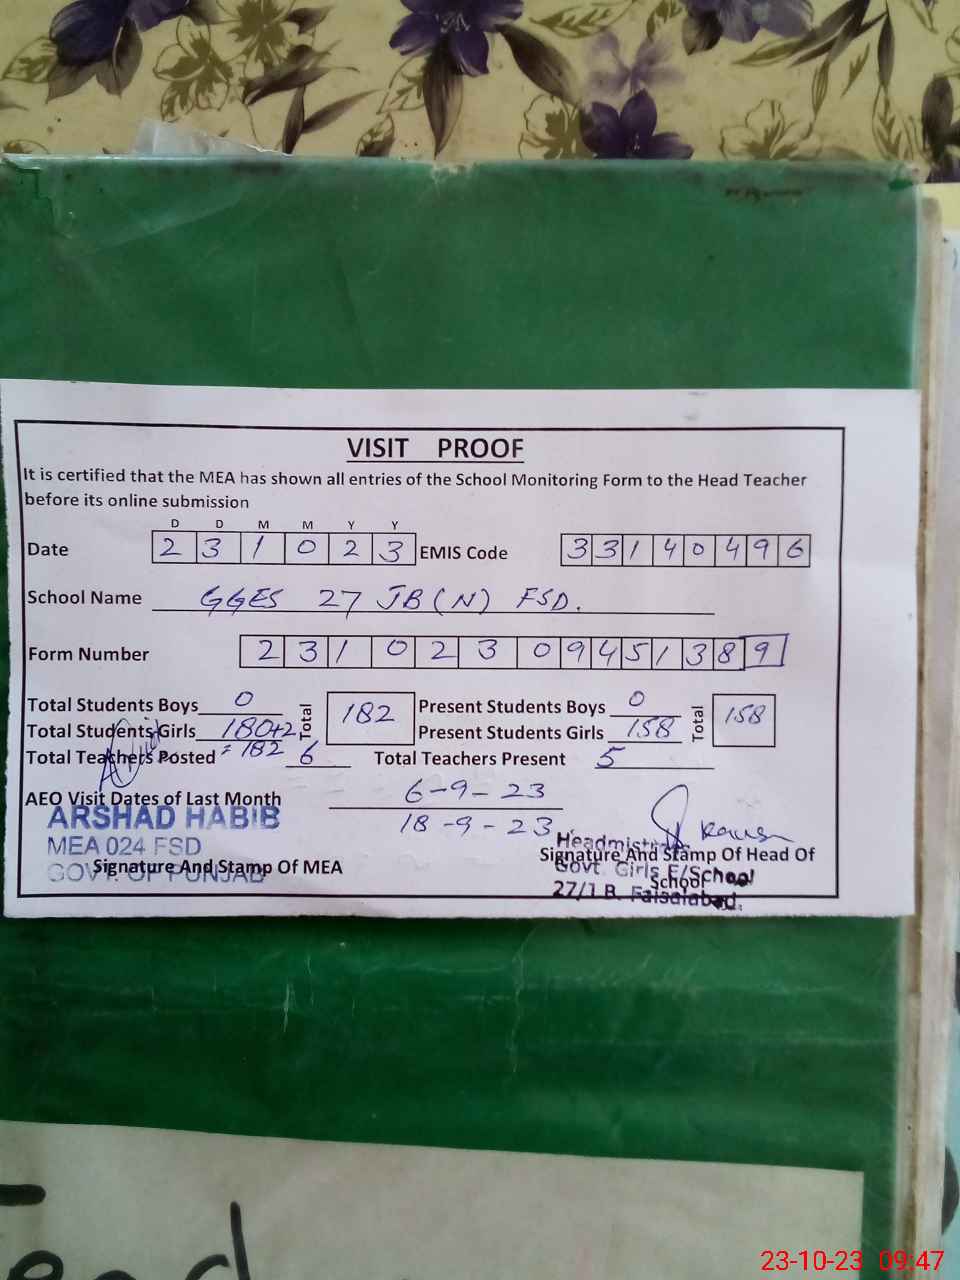 VISIT PROOF
It is certified that the MEA has shown all entries of the School Monitoring Form to the Head Teacher
before its online submission
D D M M Y Y
Date 2 3 1 0 2 3 EMIS Code 3 3 1 4 0 4 9 6
School Name GGES 27 JB (N) FSD.
Form Number 2 3 1 0 2 3 0 9 4 5 1 3 8 9
Total Students Boys 0 Total 182 Present Students Boys 0 Total 158
Total Students Girls 180+2 Present Students Girls 158
= 182
Total Teachers Posted 6 Total Teachers Present 5
AEO Visit Dates of Last Month 6-9-23
18-9-23
ARSHAD HABIB
MEA 024 FSD
GOVT. OF PUNJAB
Signature And Stamp Of MEA
Signature And Stamp Of Head Of
School
Govt. Girls E/School
27/J B. Faisalabad.
23-10-23 09:47